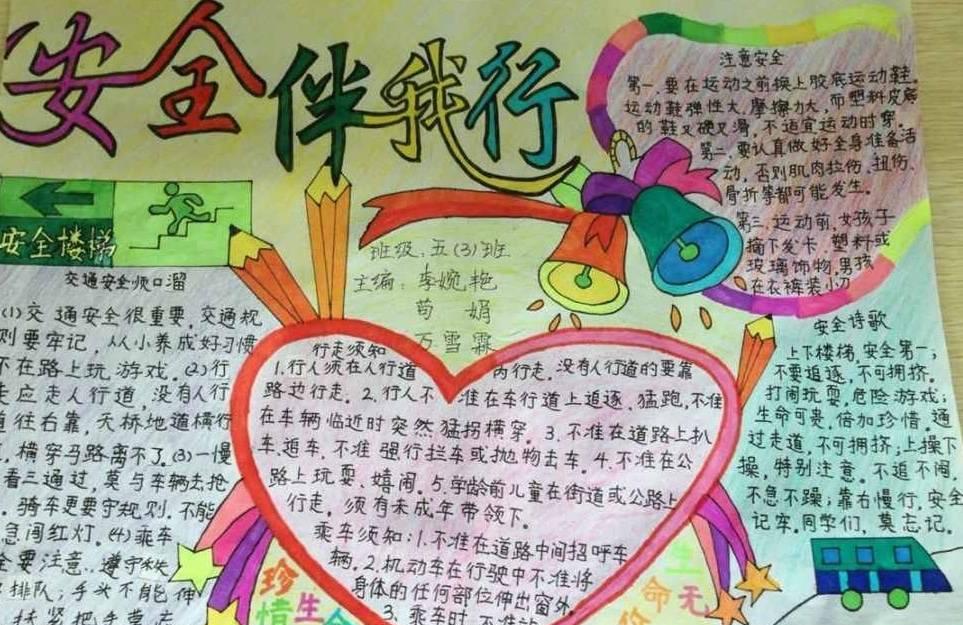 安全伴我行
安全楼梯
班级:五(3)班
主编:李婉艳
荀 娟
万雪霖
注意安全
第一,要在运动之前换上胶底运动鞋。
运动鞋弹性大,摩擦力大,而塑料皮底
的鞋又硬又滑,不适宜运动时穿。
第二,要认真做好全身准备活
动,否则肌肉拉伤、扭伤、
骨折等都可能发生。
第三,运动前,女孩子
摘下发卡,塑料或
玻璃饰物,男孩
在衣裤装小刀
交通安全顺口溜
(1)交通安全很重要,交通规
则要牢记,从小养成好习惯
不在路上玩游戏。(2)行
走应走人行道,没有人行
道往右靠,天桥地道横行
,横穿马路离不了。(3)一慢
看三通过,莫与车辆去抢
骑车更要守规则,不能
急闯红灯。(4)乘车
全要注意,遵守秩
排队;手头不能伸
扶紧把手莫
行走须知
1.行人须在人行道内行走,没有人行道的要靠
路边行走。2.行人不准在车行道上追逐、猛跑,不准
在车辆临近时突然猛拐横穿。3.不准在道路上扒
车、追车,不准强行拦车或抛物击车。4.不准在公
路上玩耍、嬉闹。5.学龄前儿童在街道或公路上
行走,须有未成年带领下。
乘车须知:1.不准在道路中间招呼车
辆。2.机动车在行驶中不准将
身体的任何部位伸出窗外。
3.乘车时,不准
安全诗歌
上下楼梯,安全第一;
不要追逐,不可拥挤。
打闹玩耍,危险游戏;
生命可贵,倍加珍惜,通
过走道,不可拥挤,上操下
操,特别注意。不追不闹,
不急不躁;靠右慢行,安全
记牢。同学们,莫忘记。
珍惜生命
生命无价